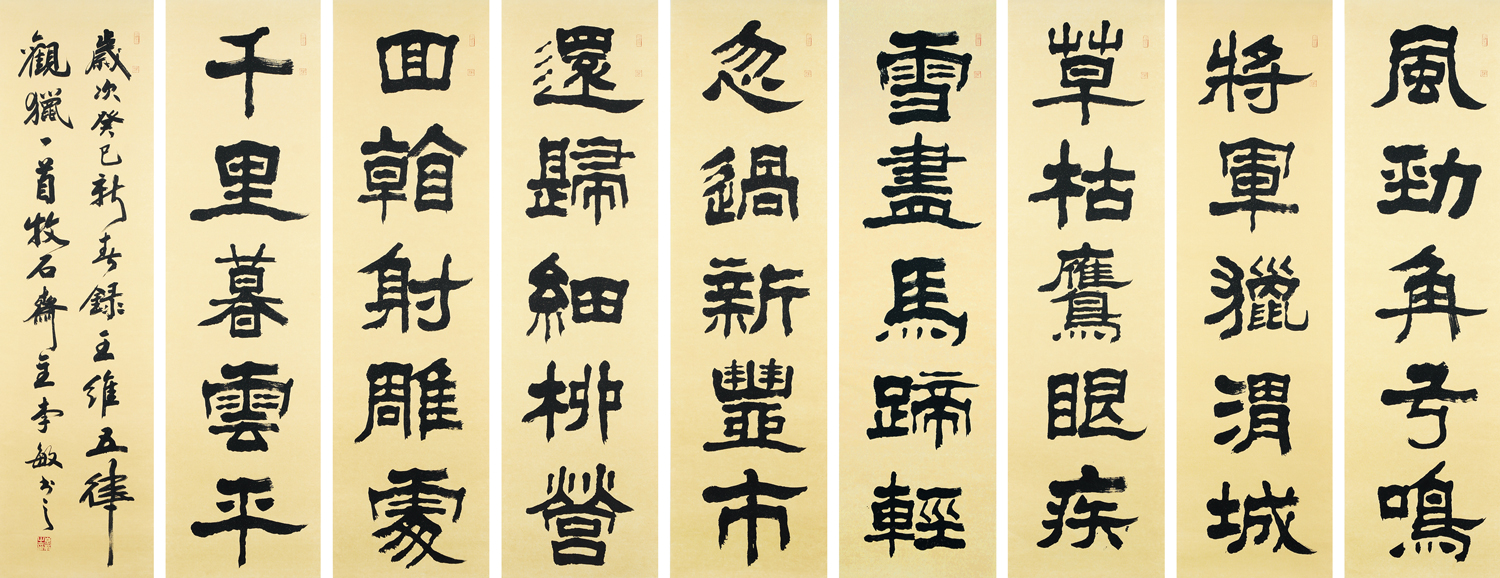 風勁角弓鳴
將軍獵渭城
草枯鷹眼疾
雪盡馬蹄輕
忽過新豐市
還歸細柳營
回看射雕處
千里暮雲平
歲次癸巳新春錄王維五律
觀獵一首牧石齋主李敏書之